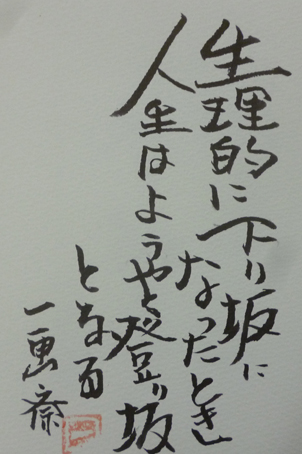 生理的に下り坂に
なったとき
人生はようやく登り坂
となる
一画斎